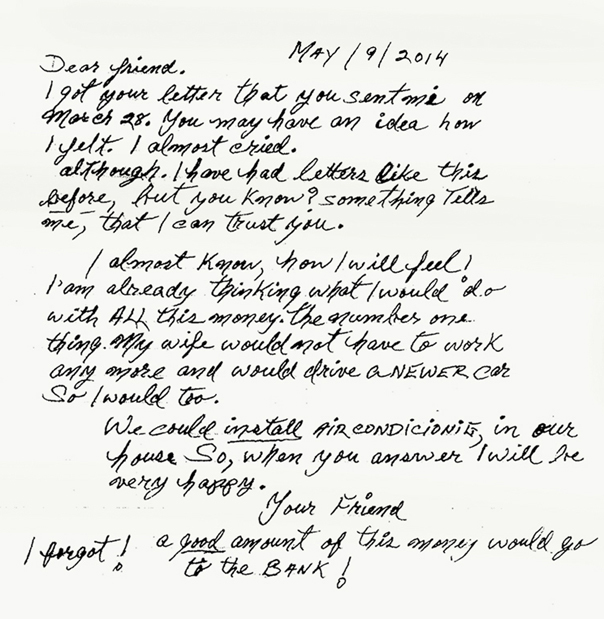 MAY/9/2014
Dear friend.
I got your letter that you sent me on
March 28. You may have an idea how
I felt. I almost cried.
although. I have had letters like this
before, but you know? something Tells
me, that I can trust you.
I almost know, how I will feel!
I am already thinking what I would do
with ALL this money. The number one
thing. My wife would not have to work
any more and would drive a NEWER car
So I would too.
We could install AIR CONDICIONIG, in our
house So, when you answer I will be
very happy.
Your Friend
I forgot! a good amount of this money would go
to the BANK!